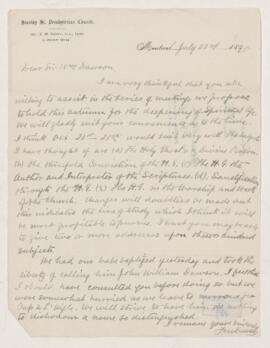 Stanley St. Presbyterian Church.
Montreal, July 22nd 189
Dear Sir Wm Dawson
I am very thankful that you are
willing to assist in the series of meetings we propose
to hold this autumn for the deepening of Spiritual life
We will gladly suit your convenience as to the time.
I think Oct. would suit very well. The subjects
I have thought of are (a) The Holy Ghost a Divine Person.
(b) the threefold Conviction of the H.G. (c) The H.G. the
Author and Interpreter of the Scriptures. (d) Sanctification
through the H.G. (e) The H.G. in the Worship and Work
of the Church. Changes will doubtless be made but
this indicates the line of study which I think it will
be most profitable to pursue. I trust you may be able
to give two or more addresses upon these or kindred
subjects.
We had our babe baptized yesterday and took the
liberty of calling him John William Dawson. I
I should have consulted you before doing so but we
were somewhat hurried as we leave to morrow
We will strive to have him do nothing
to dishonour a name so distinguished.
I remain yours sincerely